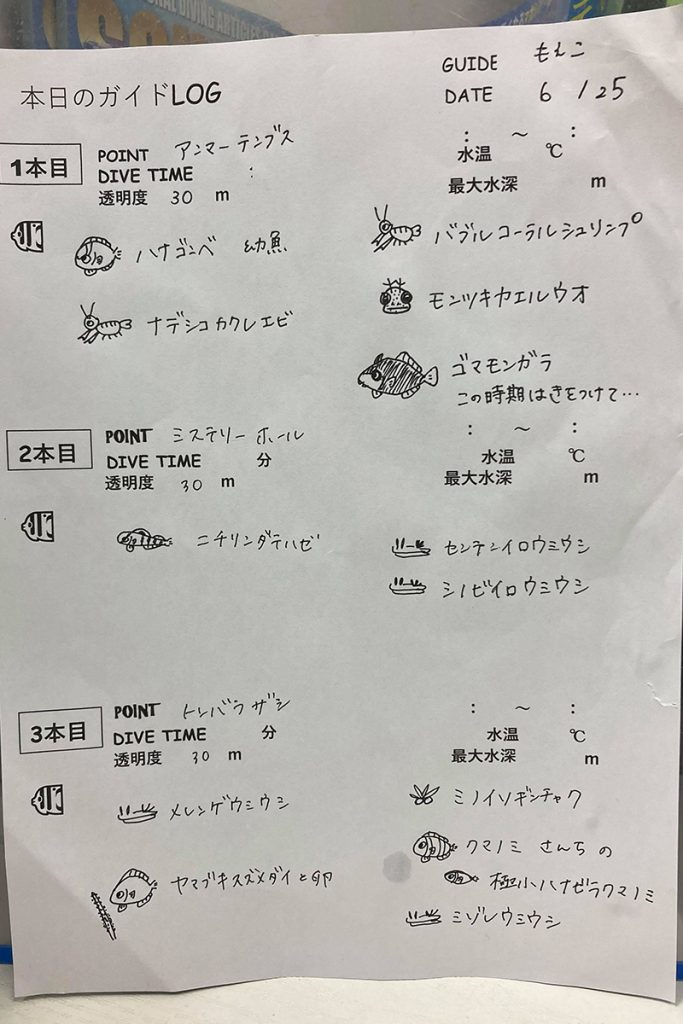 本日のガイドLOG
GUIDE もえこ
DATE 6 / 25
1本目
POINT アンマーテンブス
DIVE TIME :
透明度 30 m
: ～ :
水温 ℃
最大水深 m
ハナゴンベ 幼魚
ナデシコカクレエビ
バブルコーラルシュリンプ
モンツキカエルウオ
ゴマモンガラ
この時期はきをつけて…
2本目
POINT ミステリーホール
DIVE TIME 分
透明度 30 m
: ～ :
水温 ℃
最大水深 m
ニチリンダテハゼ
センテンイロウミウシ
シノビイロウミウシ
3本目
POINT トンバラザシ
DIVE TIME 分
透明度 30 m
: ～ :
水温 ℃
最大水深 m
メレンゲウミウシ
ヤマブキスズメダイと卵
ミノイソギンチャク
クマノミ さんちの
極小ハナビラクマノミ
ミゾレウミウシ